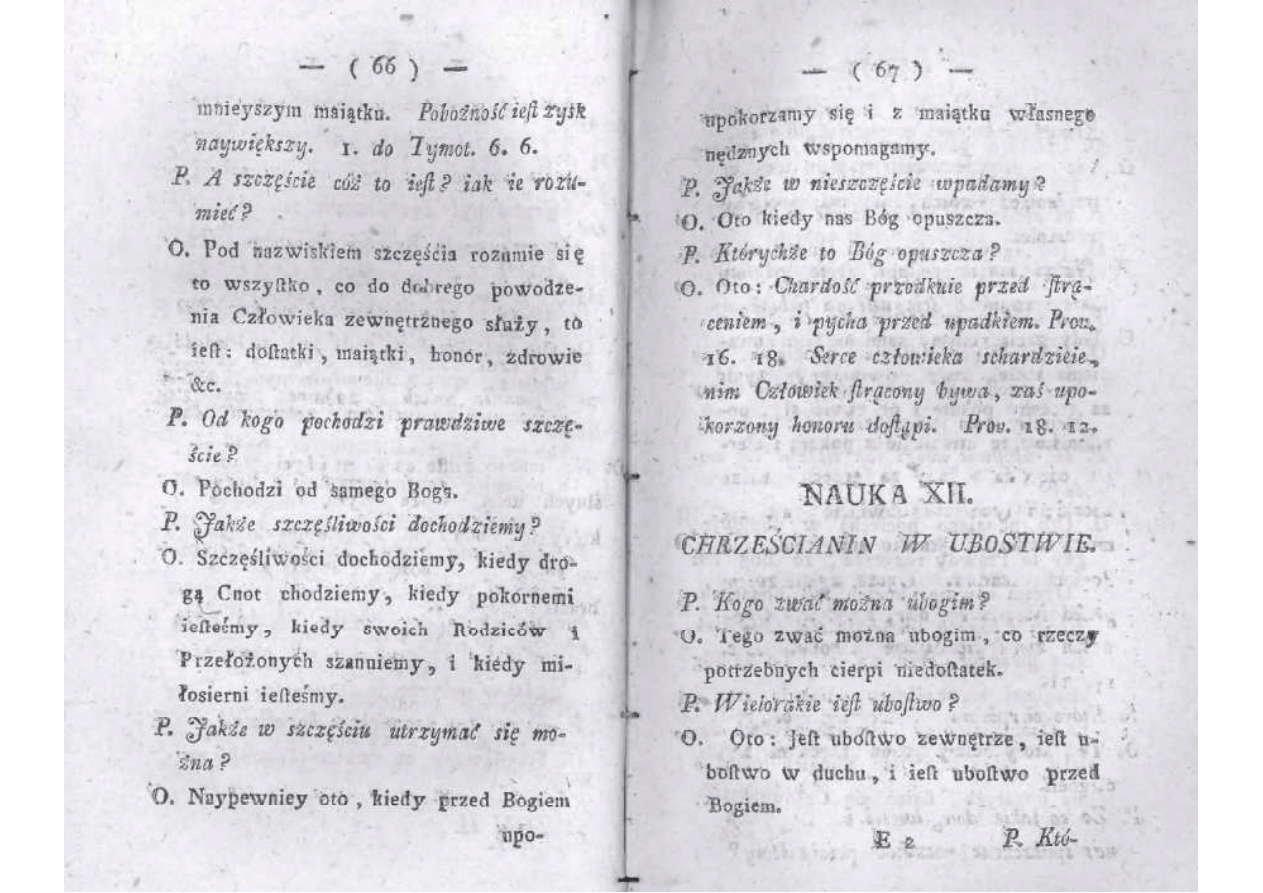 — ( 66 ) —
mnieyszym maiątku. Pobożność ieſt zyſk
naywiększy. 1. do Tymot. 6. 6.
P. A szczęście cóż to ieſt? iak ie rozu-
mieć?
O. Pod nazwiskiem szczęścia rozumie się
to wszyſtko, co do dobrego powodze-
nia Człowieka zewnętrznego służy, to
ieſt: doſtatki, maiątki, honor, zdrowie
&c.
P. Od kogo pochodzi prawdziwe szczę-
ście?
O. Pochodzi od samego Boga.
P. Jakże szczęśliwości dochodziemy?
O. Szczęśliwości dochodziemy, kiedy dro-
gą Cnot chodziemy, kiedy pokornemi
ieſteśmy, kiedy swoich Rodziców i
Przełożonych szanuiemy, i kiedy mi-
łosierni ieſteśmy.
P. Jakże w szczęściu utrzymać się mo-
żna?
O. Naypewniey oto, kiedy przed Bogiem
upo-
— ( 67 ) —
upokorzamy się i z maiątku własnego
nędznych wspomagamy.
P. Jakże w nieszczęście wpadamy?
O. Oto kiedy nas Bóg opuszcza.
P. Którychże to Bóg opuszcza?
O. Oto: Chardość przodkuie przed ſtrą-
ceniem, i pycha przed upadkiem. Prov.
16. 18. Serce człowieka schardzieie,
nim Człowiek ſtrącony bywa, zaś upo-
korzony honoru doſtąpi. Prov. 18. 12.
NAUKA XII.
CHRZEŚCIANIN W UBOSTWIE.
P. Kogo zwać można ubogim?
O. Tego zwać można ubogim, co rzeczy
potrzebnych cierpi niedoſtatek.
P. Wielorakie ieſt uboſtwo?
O. Oto: Jeſt uboſtwo zewnętrze, ieſt u-
boſtwo w duchu, i ieſt uboſtwo przed
Bogiem.
E 2 P. Któ-